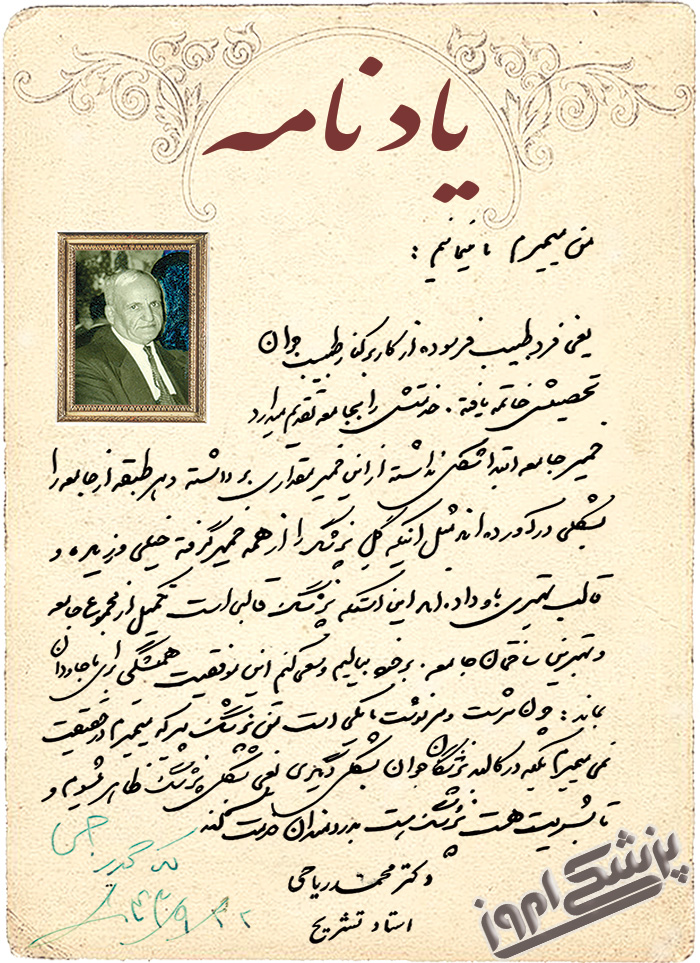 یادنامه
من میمیرم تا بمانیم :
یعنی فرد طبیب فرسوده از کار برکنار و طبیب جوان
تحصیلش خاتمه یافته . خدمتش را بجامعه تقدیم میدارد
خمیر جامعه ابتدا شکلی نداشته از این خمیر مقداری برداشته و هر طبقه از جامعه را
بشکلی درآورده اند مثل اینکه گل پزشک را از همه خمیر گرفته خیلی ورزیده و
قالب بهتری باو داده اند این است که پزشک قالبی است تکمیل از مجموع جامعه
و بهترین ساختمان جامعه . برخود ببالیم و سعی کنم این موفقیت همیشگی برای ما جاودان
بماند : چون سرشت و سرنوشت ما یکی است یعنی پزشک پیر که میمیرم در حقیقت
نمی میمیرم بلکه در کالبد پزشکان جوان بشکل دیگری یعنی بشکل پزشک ظاهر میشویم و
تا بشریت هست پزشک هست بدردمندان خدمت میکند
دکتر محمد ریاحی
استاد تشریح
پزشکی امروز